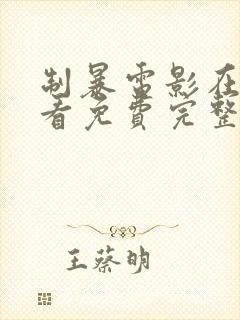 制暴雷影在
看免费完整
王蔡明